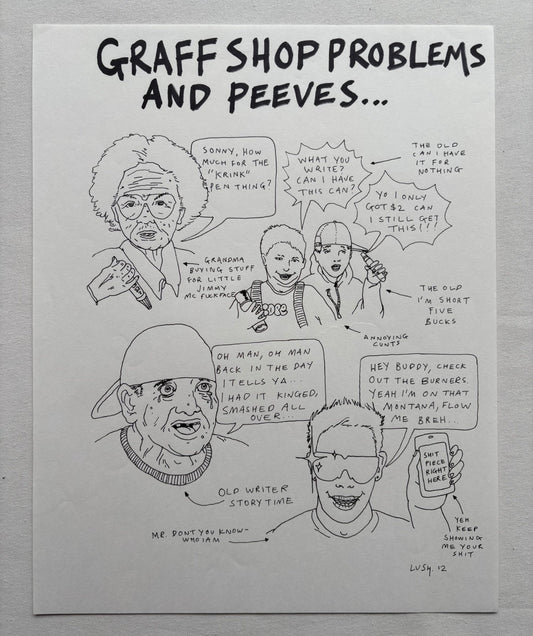 GRAFF SHOP PROBLEMS
AND PEEVES...
SONNY, HOW
MUCH FOR THE
"KRINK"
PEN THING?
GRANDMA
BUYING STUFF
FOR LITTLE
JIMMY
MC FUCKFACE
WHAT YOU
WRITE?
CAN I HAVE
THIS CAN?
THE OLD
CAN I HAVE
IT FOR
NOTHING
YO I ONLY
GOT $2 CAN
I STILL GET
THIS!!!
THE OLD
I'M SHORT
FIVE
BUCKS
ANNOYING
CUNTS
OH MAN, OH MAN
BACK IN THE DAY
I TELLS YA...
I HAD IT KINGED,
SMASHED ALL
OVER...
OLD WRITER
STORY TIME
HEY BUDDY, CHECK
OUT THE BURNERS.
YEAH I'M ON THAT
MONTANA, FLOW
ME BREH...
SHIT
PIECE
RIGHT
HERE
MR. DONT YOU KNOW-
WHO I AM
YEH
KEEP
SHOWING
ME YOUR
SHIT
LUSH. 12